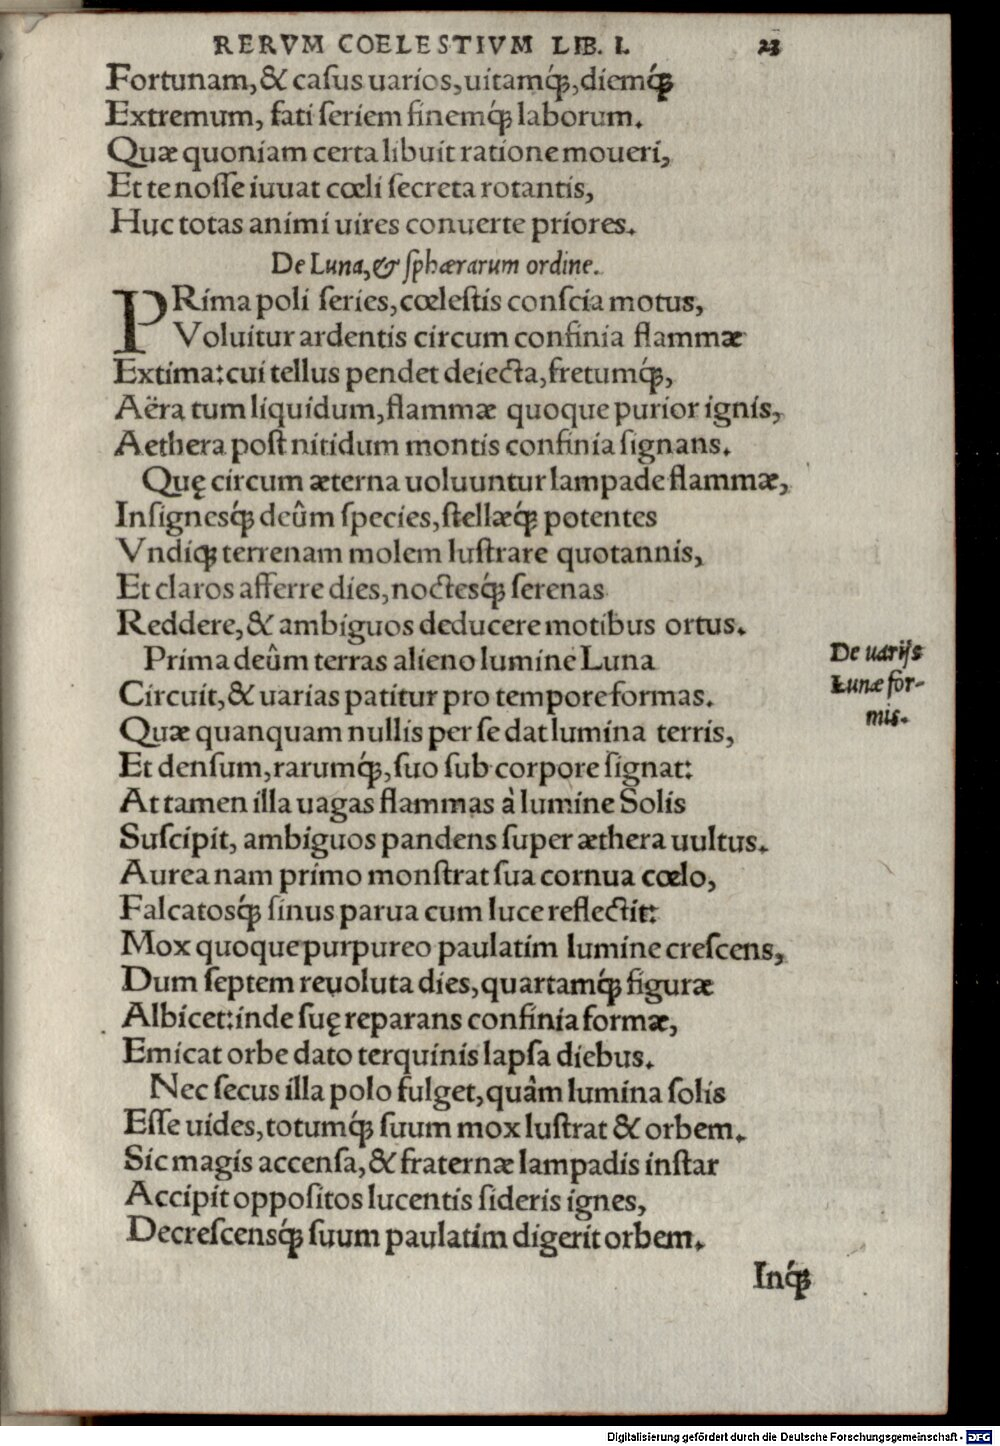 RERVM COELESTIVM LIB. I. 23
Fortunam, & caſus uarios, uitamq́ꝫ, diemq́ꝫ
Extremum, fati ſeriem finemq́ꝫ laborum.
Quæ quoniam certa libuit ratione moueri,
Et te noſſe iuuat cœli ſecreta rotantis,
Huc totas animi uires conuerte priores.
De Luna, & ſphærarum ordine.
PRima poli ſeries, cœleſtis conſcia motus,
Voluitur ardentis circum confinia flammæ
Extima: cui tellus pendet deiecta, fretumq́ꝫ,
Aëra tum liquidum, flammæ quoque purior ignis,
Aethera poſt nitidum montis confinia ſignans.
Quę circum æterna uoluuntur lampade flammæ,
Inſignesq́ꝫ deûm ſpecies, ſtellæq́ꝫ potentes
Vndiqꝫ terrenam molem luſtrare quotannis,
Et claros afferre dies, noctesq́ꝫ ſerenas
Reddere, & ambiguos deducere motibus ortus.
Prima deûm terras alieno lumine Luna
Circuit, & uarias patitur pro tempore formas.
Quæ quanquam nullis per ſe dat lumina terris,
Et denſum, rarumq́ꝫ, ſuo ſub corpore ſignat:
At tamen illa uagas flammas à lumine Solis
Suſcipit, ambiguos pandens ſuper æthera uultus.
Aurea nam primo monſtrat ſua cornua cœlo,
Falcatosq́ꝫ ſinus parua cum luce reflectit:
Mox quoque purpureo paulatim lumine creſcens,
Dum ſeptem reuoluta dies, quartamq́ꝫ figuræ
Albicet: inde ſuę reparans confinia formæ,
Emicat orbe dato terquinis lapſa diebus.
Nec ſecus illa polo fulget, quâm lumina ſolis
Eſſe uides, totumq́ꝫ ſuum mox luſtrat & orbem.
Sic magis accenſa, & fraternæ lampadis inſtar
Accipit oppoſitos lucentis ſideris ignes,
Decreſcensq́ꝫ ſuum paulatim digerit orbem.
Inq́ꝫ
De uarijs
Lunæ for-
mis.
Digitalisierung gefördert durch die Deutsche Forschungsgemeinschaft - DFG